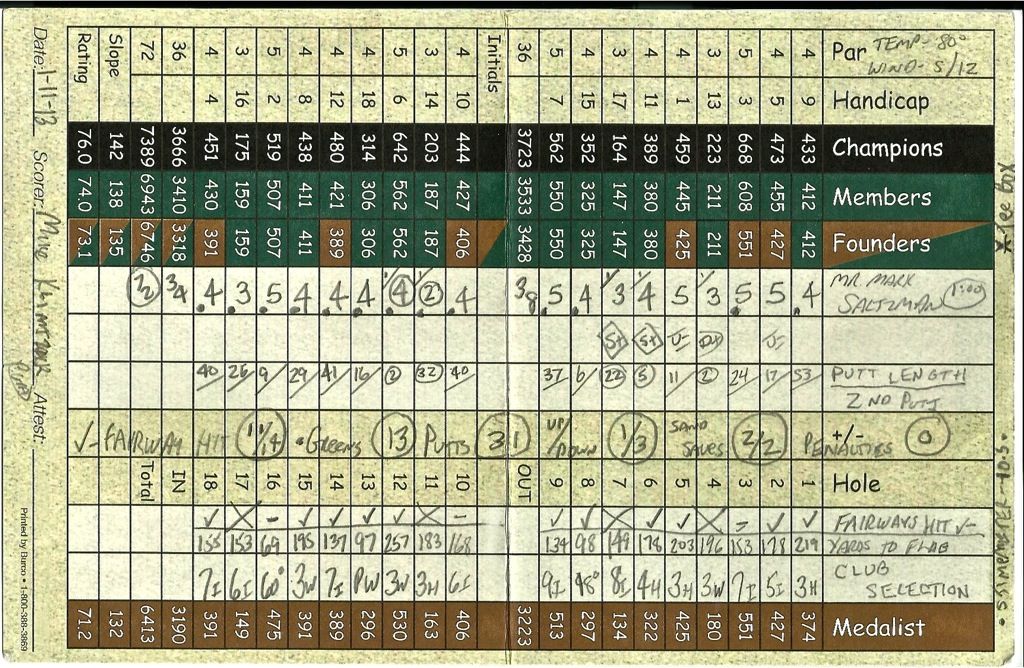 Par 4 5 5 3 4 4 3 4 5 36 Initials 4 3 5 4 4 4 5 3 4 36 72 Slope Rating
TEMP-80°
WIND-5/12
Handicap 9 5 3 13 1 11 17 15 7 10 14 6 18 12 8 2 16 4
Champions 433 473 668 223 459 389 164 352 562 3723 444 203 642 314 480 438 519 175 451 3666 7389 142 76.0
Members 412 455 608 211 445 380 147 325 550 3533 427 187 562 306 421 411 507 159 430 3410 6943 138 74.0
Founders 412 427 551 211 425 380 147 325 550 3428 406 187 562 306 389 411 507 159 391 3318 6746 135 73.1
MR. MARK SALTZMAN 1:00 4 5 5 3 5 4 3 4 5 38 4 2 4 4 4 4 5 3 4 34 72
PUTT LENGTH 53 17 24 2 11 5 22 6 37 40 32 2 16 41 29 9 26 40
2ND PUTT
✓- FAIRWAY HIT 11/14 • GREENS 13 PUTTS 31 UP/DOWN 1/3 SAND SAVES 2/2 +/- PENALTIES 0
Hole 1 2 3 4 5 6 7 8 9 OUT 10 11 12 13 14 15 16 17 18 IN Total
FAIRWAYS HIT ✓- ✓ ✓ - X ✓ ✓ X ✓ ✓ - X ✓ ✓ ✓ ✓ - X ✓
YARDS TO FLAG 219 178 153 196 203 178 149 98 134 168 183 257 97 137 195 69 153 155
CLUB SELECTION 3H 5I 7I 3W 3H 4H 8I 48° 9I 6I 3H 3W PW 7I 3W 60° 6I 7I
Medalist 374 427 551 180 425 322 134 297 513 3223 406 163 530 296 389 391 475 149 391 3190 6413 132 71.2
Date: 1-11-13 Scorer: Attest:
Printed by Baron • 1-800-388-3869